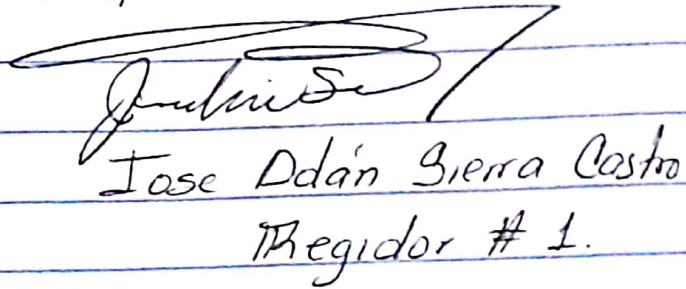 Jose Adán Sierra Castro
Regidor # 1.